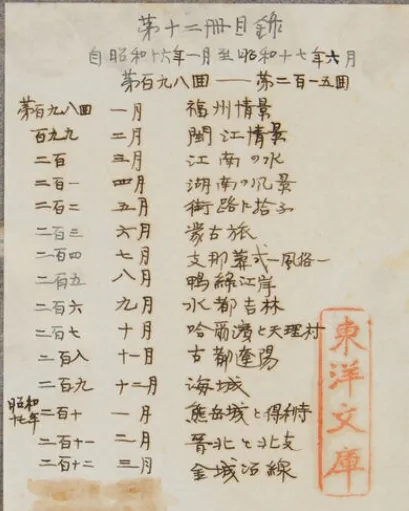 第十二冊目録
自昭和十六年一月至昭和十七年六月
第百九八回——第二百一五回
第百九八回 一月 福州情景
百九九 二月 閩江情景
二百 三月 江南の水
二百一 四月 湖南の風景
二百二 五月 街路ト塔子
二百三 六月 蒙古旅
二百四 七月 支那葬式一風俗一
二百五 八月 鴨緑江岸
二百六 九月 水都吉林
二百七 十月 哈爾濱と天理村
二百八 十一月 古都遼陽
二百九 十二月 海城
昭和十七年 二百十 一月 熊岳城と得利寺
二百十一 二月 晋北と北支
二百十二 三月 金城沿線
東洋文庫